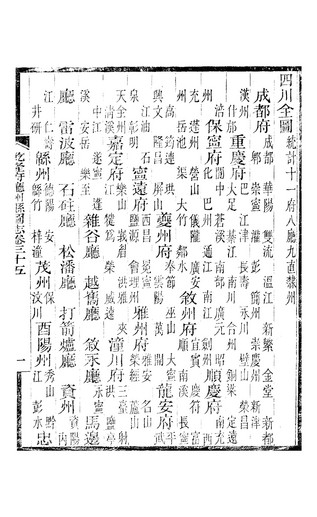 四川全圖 統計十一府八廳九直隸州
成都府 成都 華陽 雙流 溫江 新繁 金堂 新都 郫 崇寧 灌 彭 簡州 崇慶州 新津
漢州 什邡 重慶府 巴 江津 長壽 永川 榮昌 大足 綦江 南川 合州 銅梁 璧山 定遠
州 保寧府 化 巴州 通江 南江 劍州 順慶府 南 西
充 蓬州 營山 儀隴 廣安 敘州府 宜賓 慶符 富 順 南溪 長寧
州 岳池 鄰水 高 筠連 珙 興文 隆昌 屏山 夔州府 奉節 巫山 大寧 雲陽 萬 開 龍安府 平
江油 彰明 寧遠府 西昌 冕寧 會理州 雅州府 雅安 名山 蘆山
天全州 清溪 嘉定府 樂山 犍為 榮 威遠 潼川府 三臺 射 洪 鹽亭
中江 遂寧 蓬 溪 安岳 樂至 雜谷廳 越巂廳 敘永廳 永寧 馬邊
廳 雷波廳 石砫廳 松潘廳 打箭爐廳 資州 資陽 內
江 仁壽 井研 綿州 德陽 安 綿竹 梓潼 茂州 汶川 酉陽州 秀山 黔 江 彭水 忠
乾隆府廳州縣圖志卷三十五 一